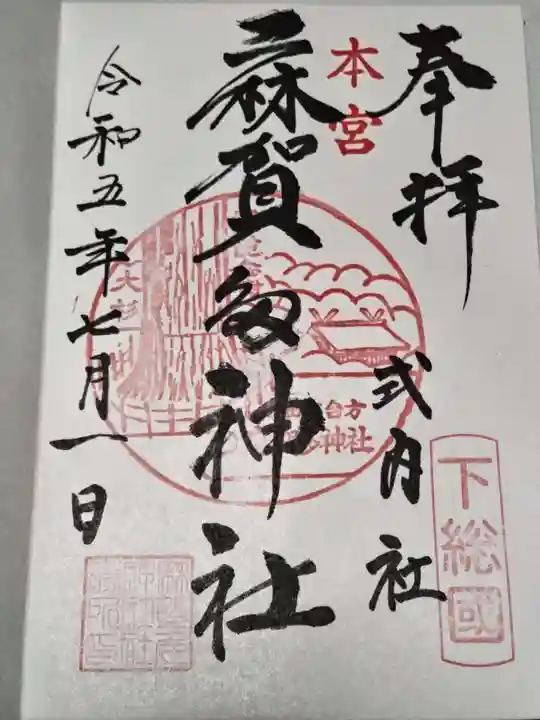 奉拝
式内社
下総國
本宮
麻賀多神社
大杉
台方
神社
令和五年七月一日